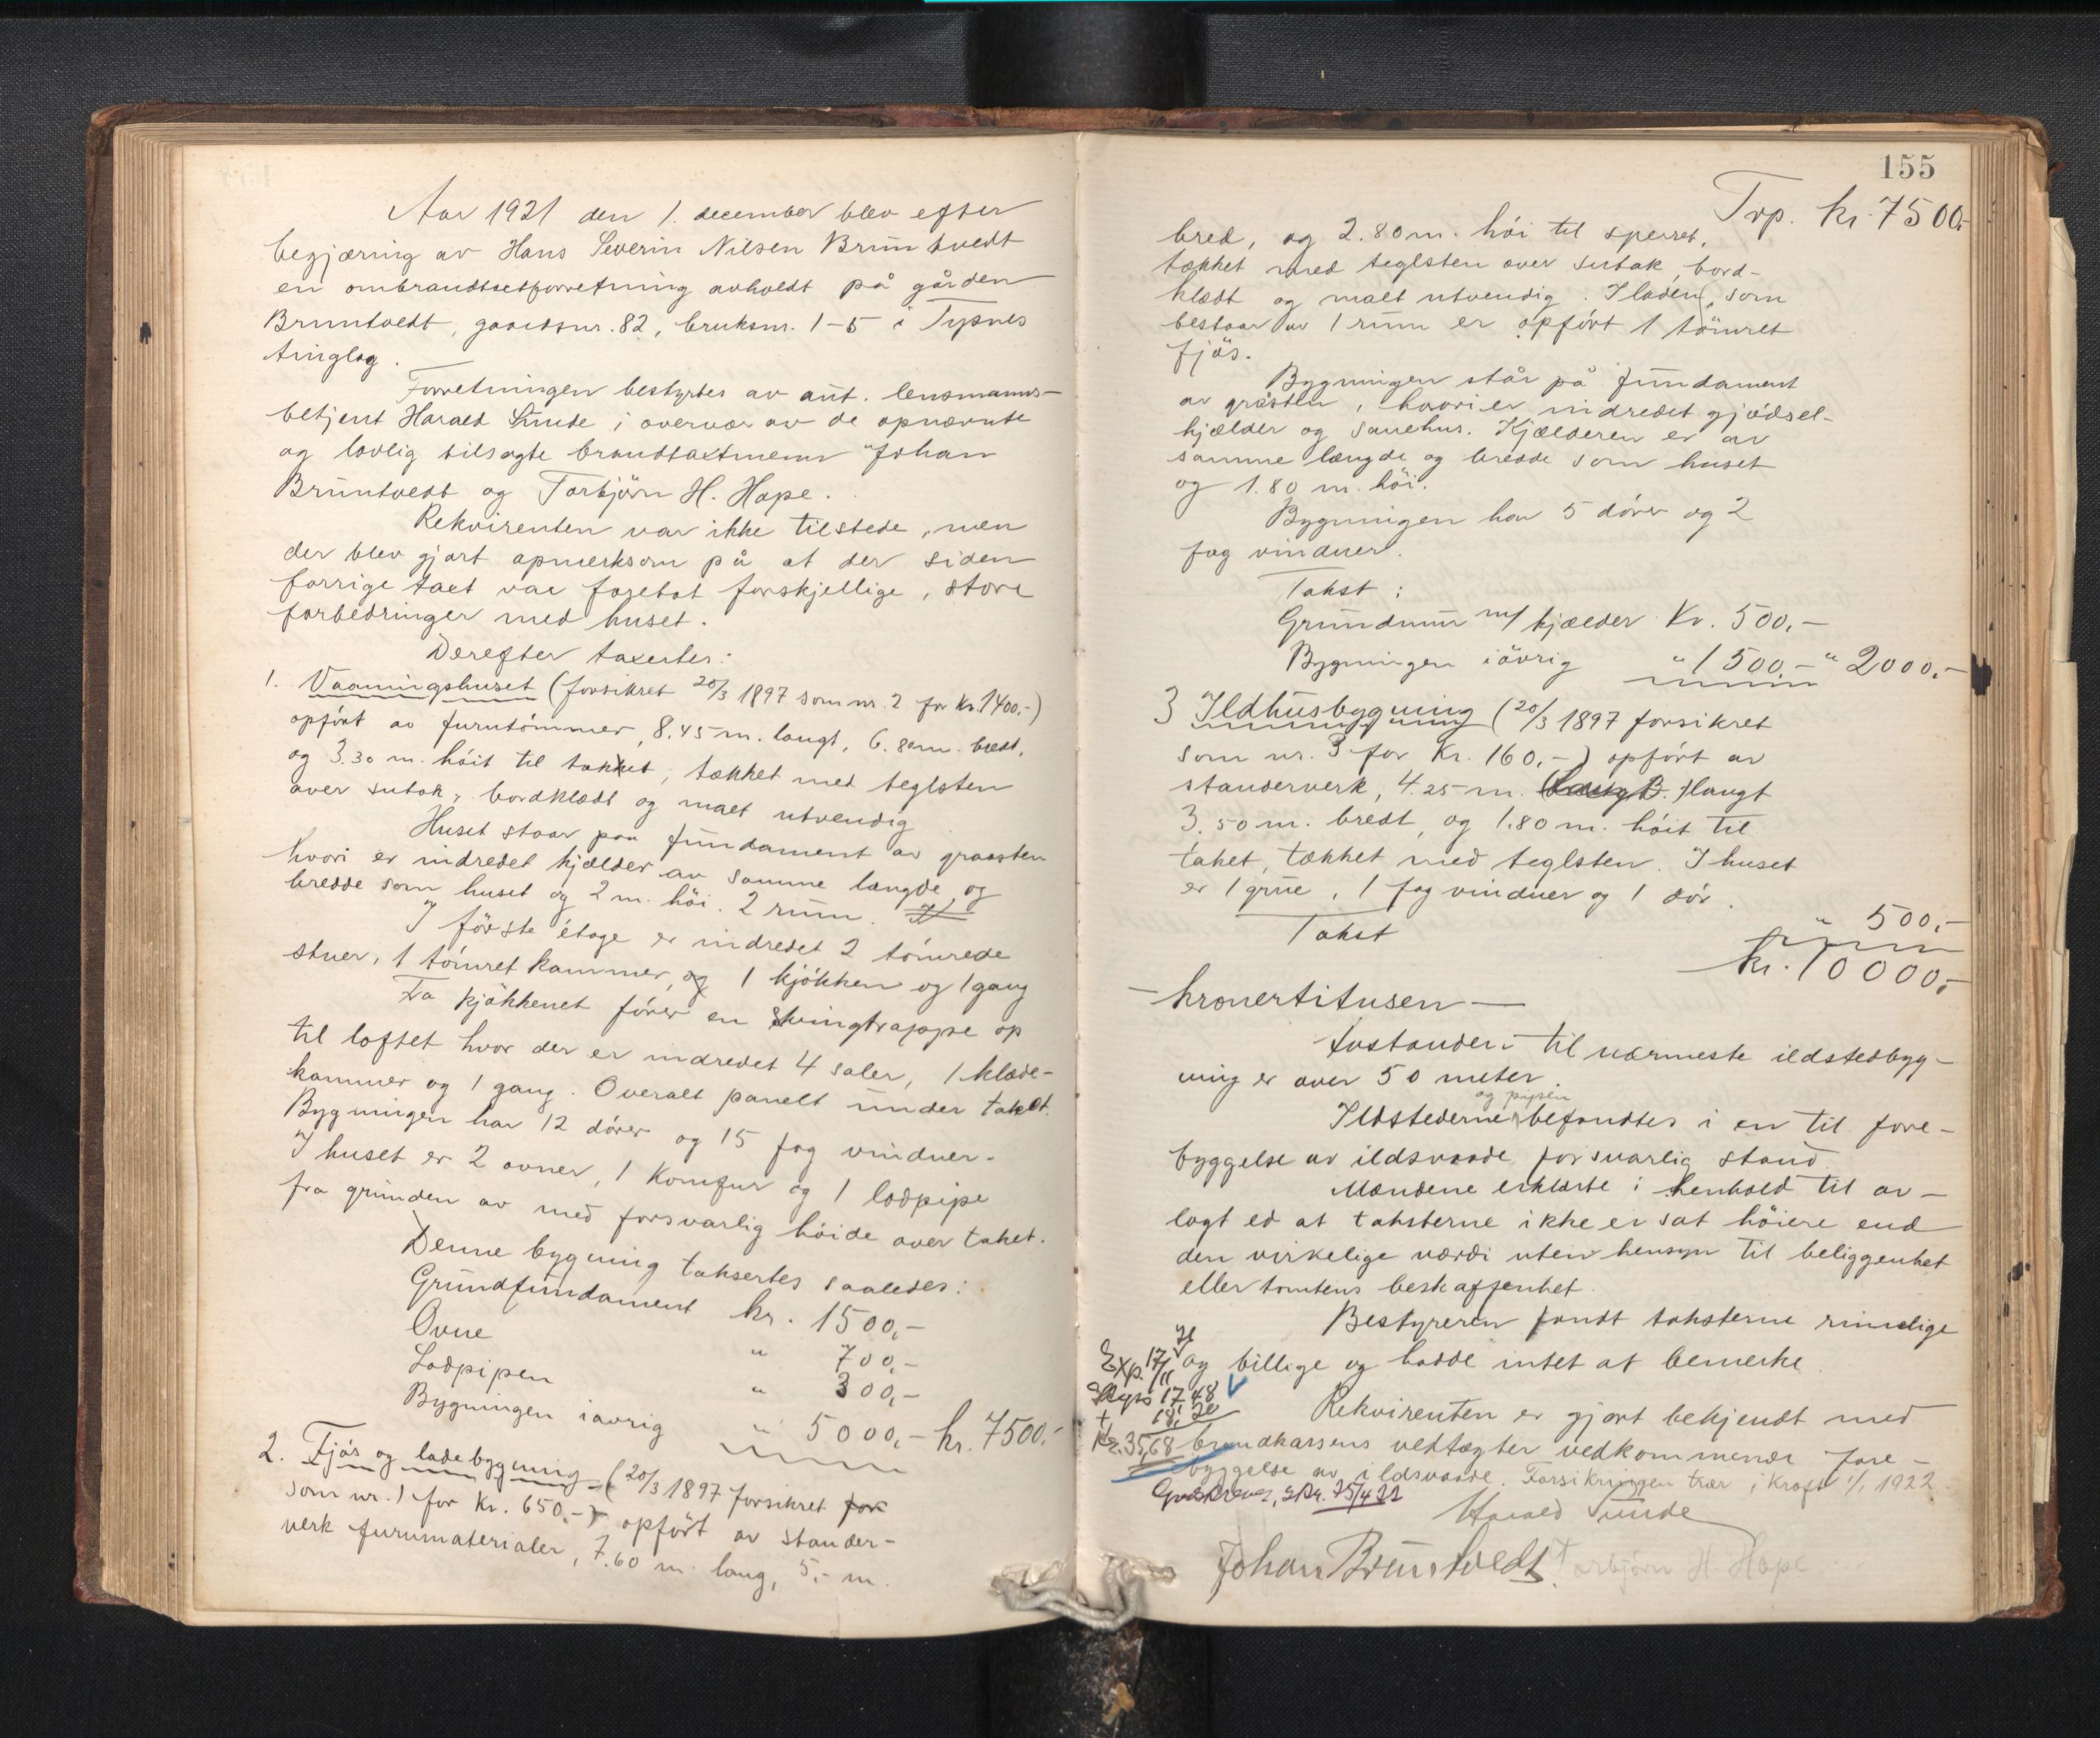 Aar 1921 den 1. december blev efter
begjæring av Hans Severin Nilsen Bruntvedt
en ombrandtaxtforretning avholdt på gården
Bruntvedt, gaardsnr. 82, bruksnr. 1-5 i Tysnes
tinglag.
Forretningen bestyrtes av aut. lensmanns-
betjent Harald Sunde i overvær av de opnævnte
og lovlig tilsagte brandtaxtmenn Johan
Bruntvedt og Torbjörn H. Hope.
Rekvirenten var ikke tilstede, men
der blev gjort opmerksom på at der siden
forrige taxt var foretat forskjellige, store
forbedringer med huset.
Derefter taxertes:
1. Vaaningshuset (forsikret 20/3 1897 som nr. 2 for kr. 1400,-)
opført av furutømmer, 8.45 m. langt, 6.80 m. bredt,
og 3.30 m. höit til taket, tækket med teglsten
over sutak, bordklædt og malt utvendig
Huset staar paa fundament av graasten
hvori er indredet kjælder av samme længde og
bredde som huset og 2 m. höi. 2 rum.
I förste etage er indredet 2 tömrede
stuer, 1 tömret kammer, og 1 kjökken og 1 gang
Fra kjökkenet förer en svingtrappe op
til loftet hvor der er indredet 4 saler, 1 klæde-
kammer og 1 gang. Overalt panelt under taket.
Bygningen har 12 dörer og 15 fag vinduer.
I huset er 2 ovner, 1 komfur og 1 lodpipe
fra grunden av med forsvarlig höide over taket.
Denne bygning taksertes saaledes:
Grundfundament kr. 1500,-
Ovne " 700,-
Lodpipen " 300,-
Bygningen iøvrig " 5000,- kr. 7500.-
2. Fjös og ladebygning (20/3 1897 forsikret for
som nr. 1 for kr. 650,-) opført av stander-
verk furumaterialer, 7.60 m. lang, 5,- m.
155
Trp. kr. 7500,-
bred, og 2.80 m. höi til sperret,
tækket med teglsten over sutak, bord-
klædt og malt utvendig. I laden, som
bestaar av 1 rum er opført 1 tömret
fjös.
Bygningen står på fundament
av gråsten, hvori er indredet gjødsel-
kjælder og sauehus. Kjælderen er av
samme længde og bredde som huset
og 1.80 m. höi.
Bygningen har 5 dörer og 2
fag vinduer.
Takst:
Grundmur m/ kjælder Kr. 500,-
Bygningen iövrig " 1500,- " 2000,-
3 Ildhusbygning (20/3 1897 forsikret
som nr. 3 for Kr. 160,-) opført av
standerverk, 4.25 m. langt
3.50 m. bredt, og 1.80 m. höit til
taket, tækket med teglsten. I huset
er 1 grue, 1 fag vinduer og 1 dör.
Takst " 500,-
kr. 10000,-
- kronertitusen -
Avstanden til nærmeste ildstedbyg-
ning er over 50 meter.
og pipen
Ildstederne befandtes i en til fore-
byggelse av ildsvaade forsvarlig stand.
Mændene erklærte i henhold til av-
lagt ed at taksterne ikke er sat höiere end
den virkelige værdi uten hensyn til beliggenhet
eller tomtens beskaffenhet.
Bestyreren fandt taksterne rimelige
og billige og hadde intet at bemerke
Rekvirenten er gjort bekjendt med
brandkassens vedtægter vedkommende fore-
byggelse av ildsvaade. Forsikringen trær i kraft 1/1 1922
Exp. 17/11
Skyds 17,48
18,20
Kr. 35,68
25/4 22
Harald Sunde
Johan Bruntvedt. Torbjörn H. Hope